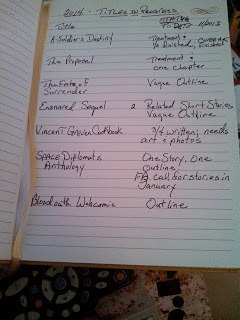 2014 - Titles in Progress
Title STATUS TO DATE 11/2013
A Soldier's Destiny Treatment & ½ finished, finished
The Proposal Treatment & one chapter
The Fires of Surrender Vague Outline
Ensnared Sequel 2 Related Short Stories Vague Outline
Vincent Cookbook ¾ written, needs art & photos
Space Diplomats Anthology One Story, One outline
call for stories in January
Bloodoath Webcomic Outline